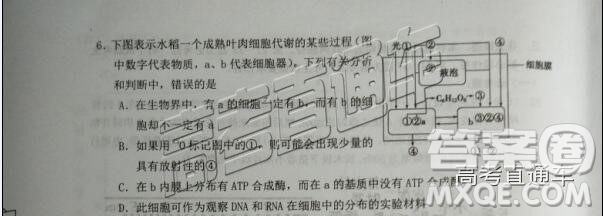 6. 下图表示水稻一个成熟叶肉细胞代谢的某些过程(图
中数字代表物质，a、b代表细胞器)。下列有关分析
和判断中，错误的是
A. 在生物界中，有a的细胞一定有b，而有b的细
胞却不一定有a
B. 如果用 O标记图中的①，则可能会出现少量的
具有放射性的④
C. 在b内膜上分布有ATP合成酶，而在a的基质中没有ATP合成酶
D. 此细胞可作为观察DNA和RNA在细胞中的分布的实验材料
光 ① ②
液泡
细胞膜
C₆H₁₂O₆ ③
①② a
b ③②④
④
④
高考直通车
答案圈
高考直通车
MXQE.COM